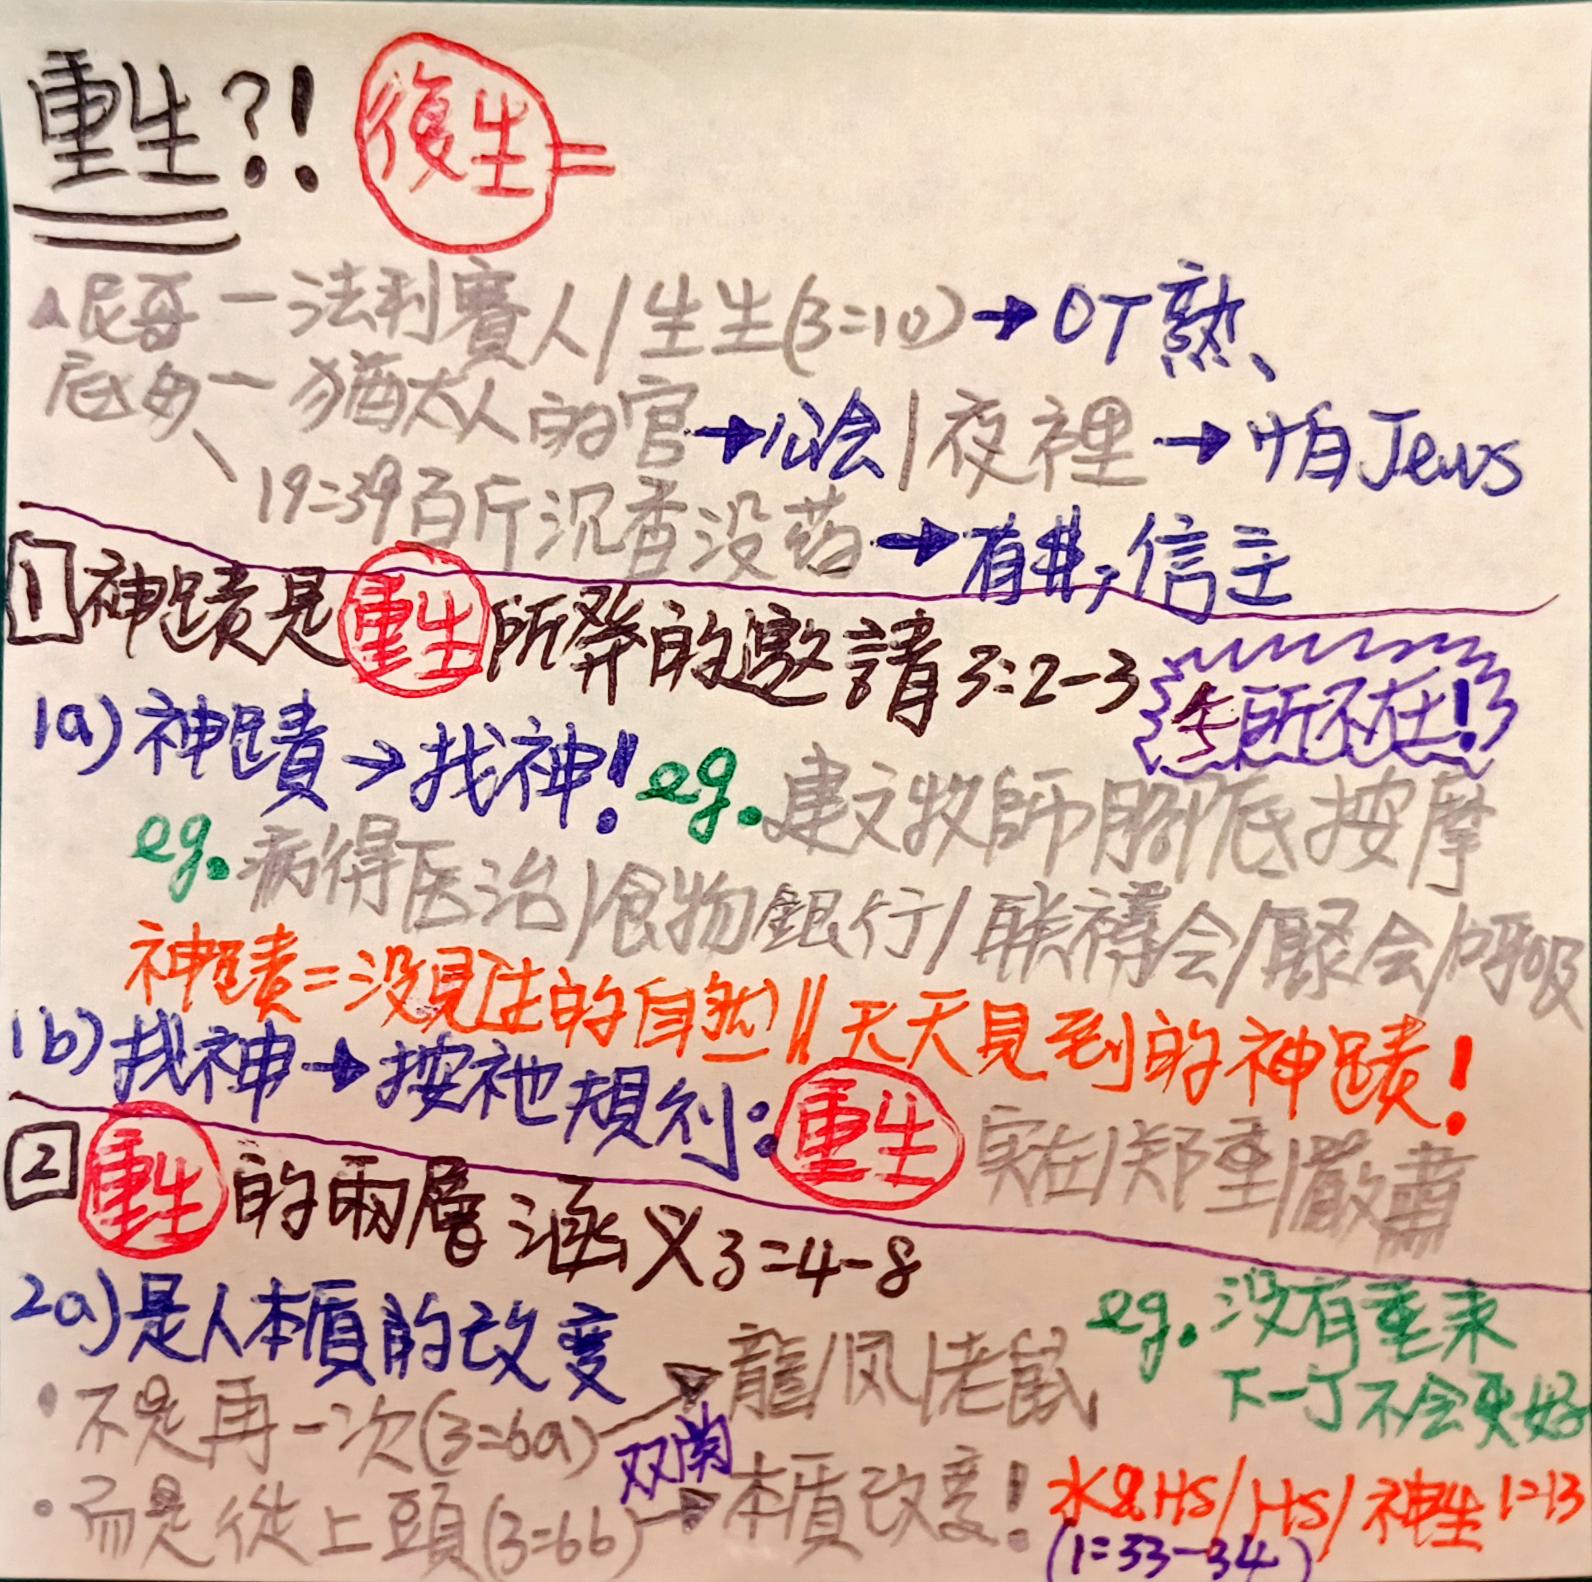 重生?! 復生=
▲尼哥 — 法利賽人/生生(3=10)→OT熟、
底母 — 猶太人的官→公会/夜裡→怕Jews
19=39百斤沉香没药→有井,信主
1 神蹟是重生所發的邀請3:2-3
所不在!
1a)神蹟→找神! eg.建文牧師腳底按摩
eg.病得医治/食物銀行/联禱会/聚会/呼吸
神蹟=没見过的自然//天天見到的神蹟!
1b)找神→按祂規則:重生 实在/郑重/嚴肅
2 重生的兩層涵义3=4-8
2a)是人本質的改变 eg.没有重来
下一个不会更好
•不是再一次(3=6a)→龍/凤/老鼠
双关
•而是從上頭(3=6b)→本質改变! 水&HS/HS/神生1=13
(1=33-34)